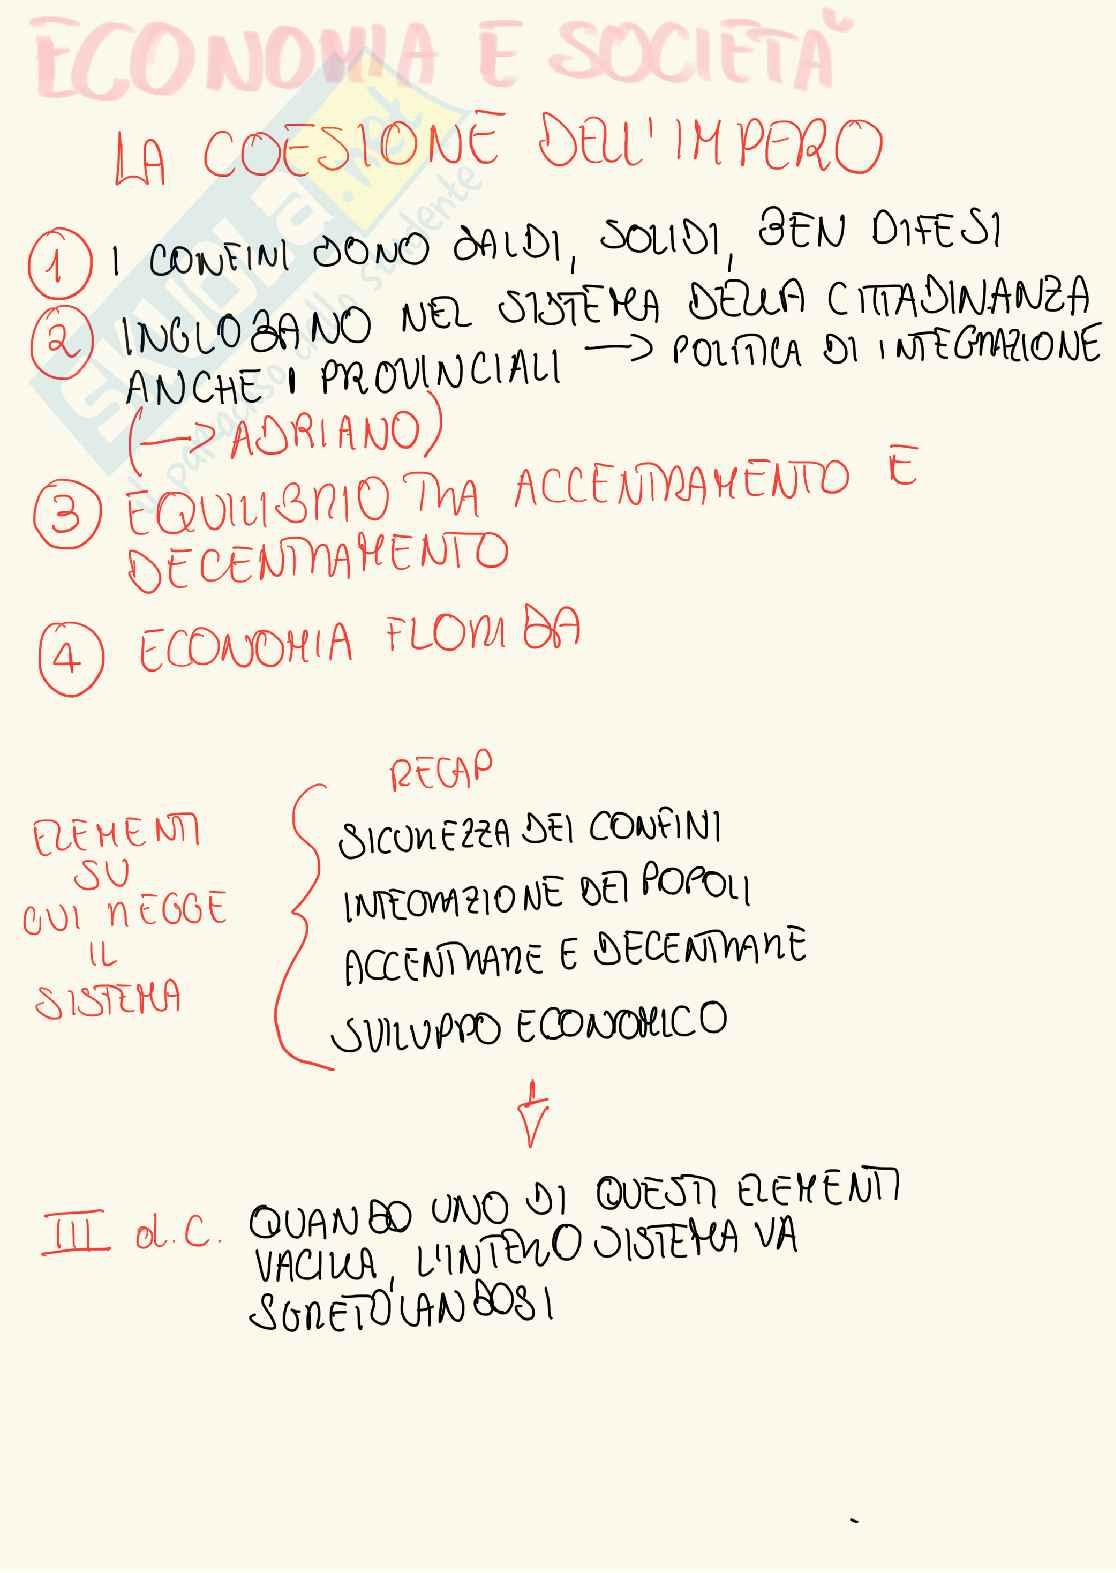 ECONOMIA E SOCIETÀ
LA COESIONE DELL'IMPERO
1 I CONFINI SONO SALDI, SOLIDI, BEN DIFESI
2 INGLOBANO NEL SISTEMA DELLA CITTADINANZA
ANCHE I PROVINCIALI → POLITICA DI INTEGRAZIONE
(→ ADRIANO)
3 EQUILIBRIO TRA ACCENTRAMENTO E
DECENTRAMENTO
4 ECONOMIA FLORIDA
RECAP
ELEMENTI
SU
CUI REGGE
IL
SISTEMA
SICUREZZA DEI CONFINI
INTEGRAZIONE DEI POPOLI
ACCENTRARE E DECENTRARE
SVILUPPO ECONOMICO
III d.C. QUANDO UNO DI QUESTI ELEMENTI
VACILLA, L'INTERO SISTEMA VA
SGRETOLANDOSI
SKUOLA.net
il paradiso dello studente